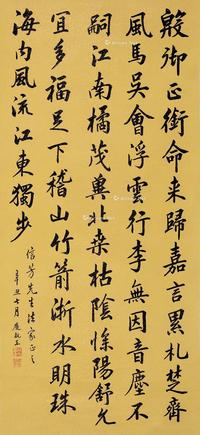 殷御正銜命来歸嘉言累札楚齊
風馬吴會浮雲行李無因音塵不
嗣江南橘茂冀北桑枯陰惨陽舒允
宜多福足下稽山竹箭浙水明珠
海内風流江東獨步
信芳先生法家正之
辛丑七月